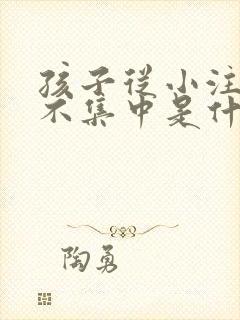 孩子從小注
不集中是什
陶勇